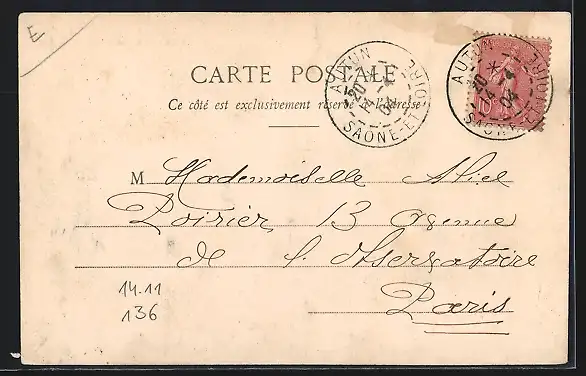 E
CARTE POSTALE
Ce côté est exclusivement réservé à l'adresse
AUTUN
20
4
04
SAONE-ET-LOIRE
AUTUN
20
4
04
SAONE-ET-LOIRE
10
M Mademoiselle
Poirier, 13 avenue
de l'Observatoire
Paris
14.11
136